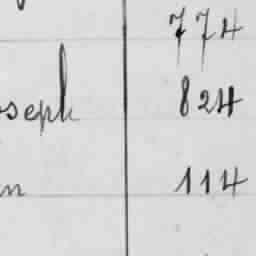 774
oseph 824
n 114